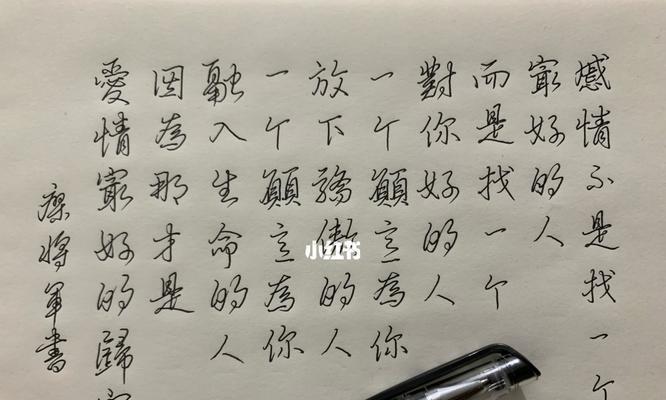 感情不是找一个
最好的人
而是找一个
對你好的人
一个願意為你
放下驕傲的人
一个願意為你
融入生命的人
因為那才是
愛情最好的歸
將軍書
小红书